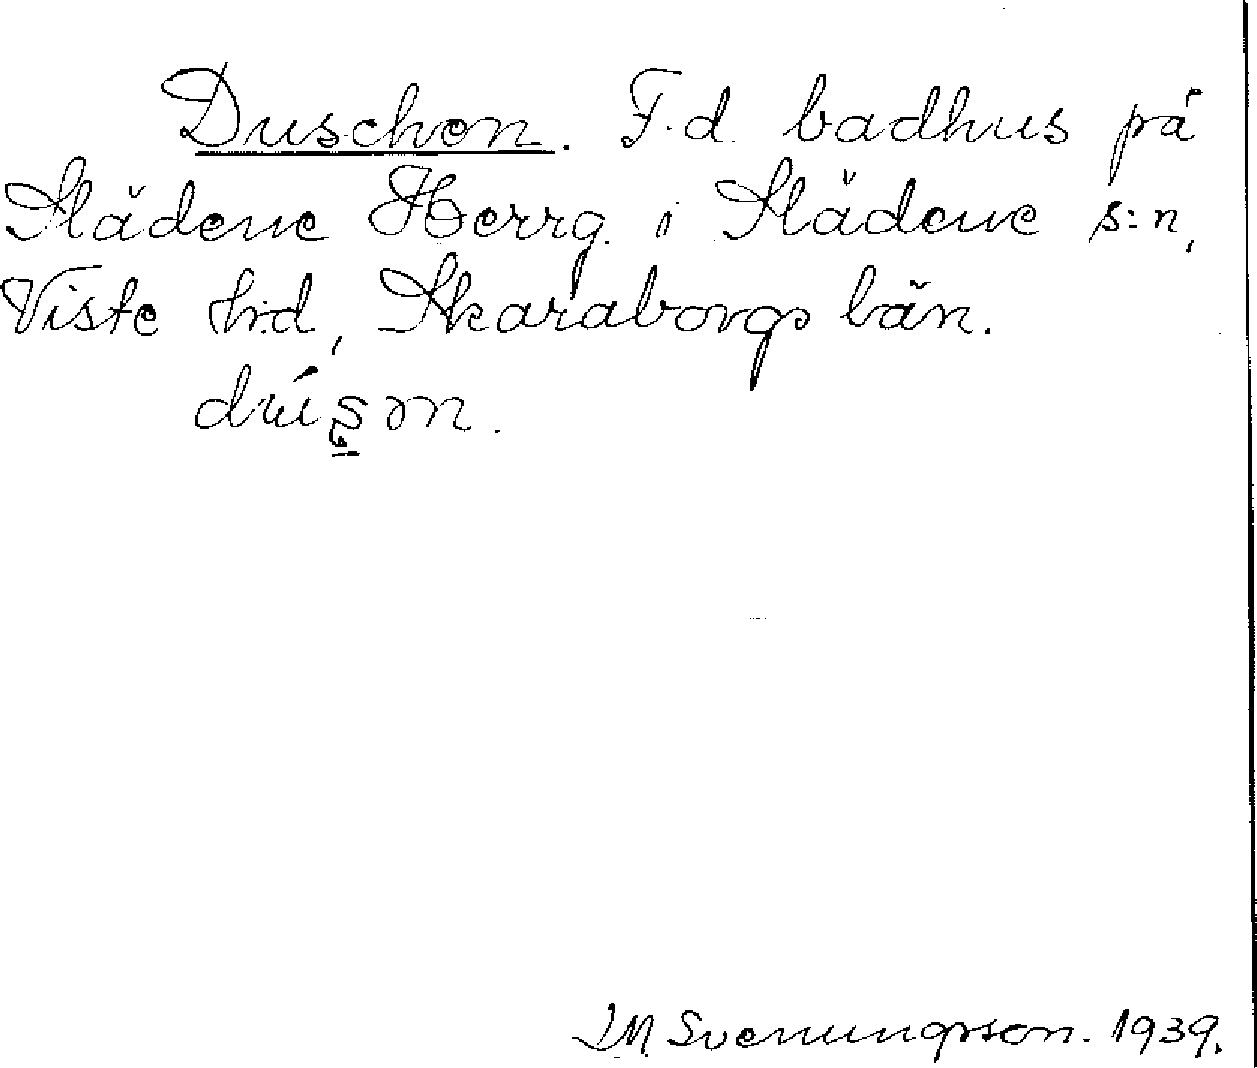 Duschen. F.d. badhus på
Slädene Herrg. i Slädene s:n,
Viste h:d, Skaraborgs län.
drúʂən.
J M Svenungsson. 1939.